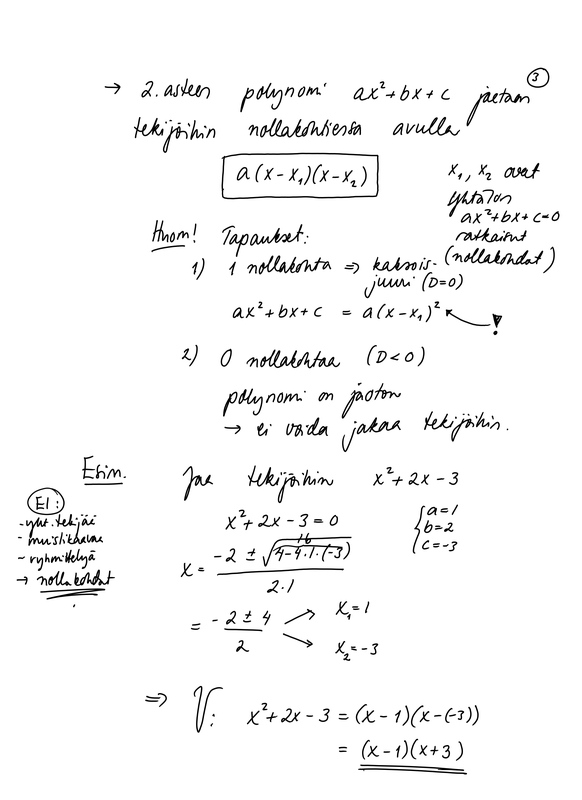 3
→ 2. asteen polynomi ax²+bx+c jaetaan
tekijöihin nollakohtiensa avulla
a(x-x₁)(x-x₂)
x₁, x₂ ovat
yhtälön
ax²+bx+c=0
ratkaisut
(nollakohdat)
Huom! Tapaukset:
1) 1 nollakohta ⇒ kaksois-
juuri (D=0)
ax²+bx+c = a(x-x₁)² !
2) 0 nollakohtaa (D<0)
polynomi on jaoton
→ ei voida jakaa tekijöihin.
Esim. Jaa tekijöihin x²+2x-3
E1:
-yht. tekijä
- muistikaava
- ryhmittelyä
→ nollakohdat
x²+2x-3=0
a=1
b=2
c=-3
16
x = (-2 ± √(4-4·1·(-3))) / (2·1)
= (-2 ± 4) / 2
x₁=1
x₂=-3
⇒ V: x²+2x-3 = (x-1)(x-(-3))
= (x-1)(x+3)